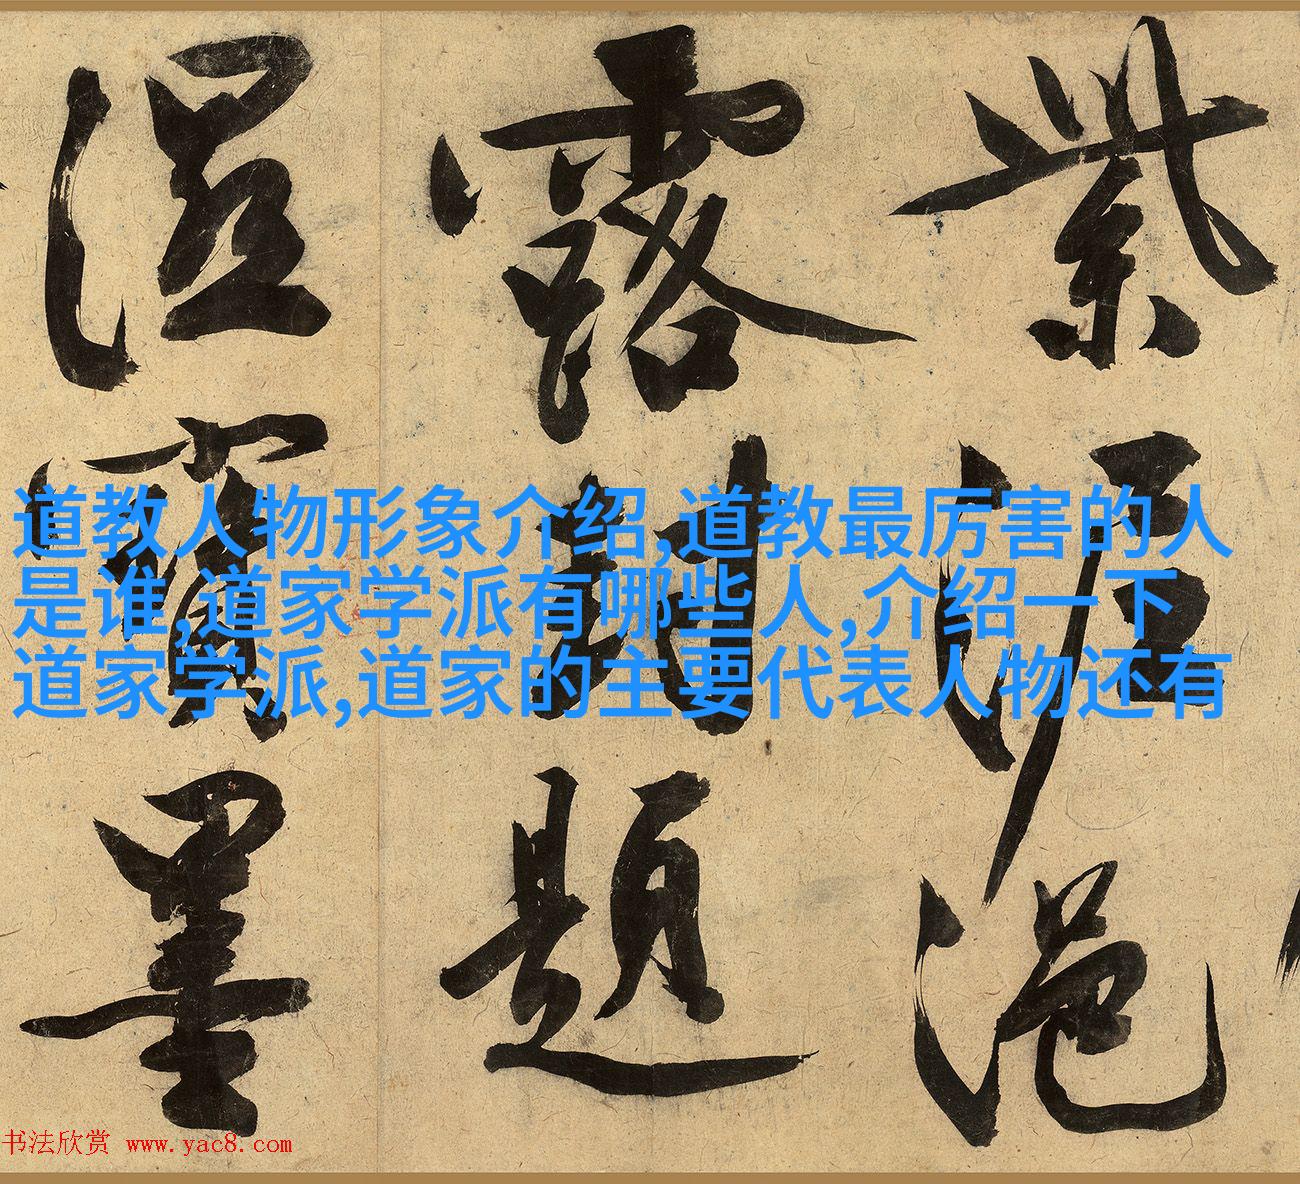 紫泥浥
露封題
濕寶墨
道教人物形象介绍,道教最厉害的人
是谁,道家学派有哪些人,介绍一下
道家学派,道家的主要代表人物还有
书法欣赏 www.yac8.com